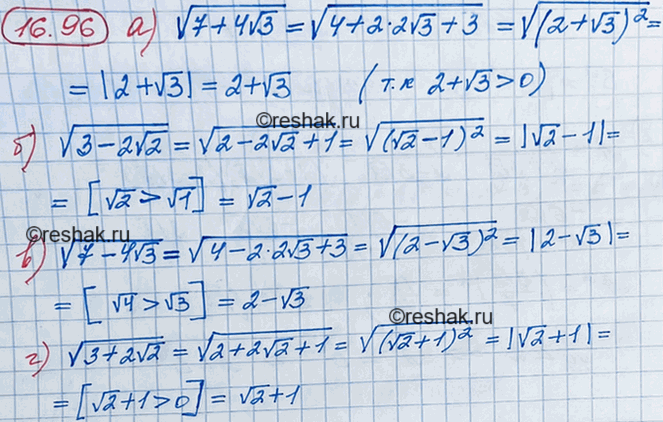 16.96 а) √(7+4√3) = √(4+2·2√3+3) = √((2+√3)²) =
= |2+√3| = 2+√3 (т.к 2+√3>0)
©reshak.ru
б) √(3-2√2) = √(2-2√2+1) = √((√2-1)²) = |√2-1| =
= [√2>√1] = √2-1
©reshak.ru
в) √(7-4√3) = √(4-2·2√3+3) = √((2-√3)²) = |2-√3| =
= [√4>√3] = 2-√3
©reshak.ru
г) √(3+2√2) = √(2+2√2+1) = √((√2+1)²) = |√2+1| =
= [√2+1>0] = √2+1